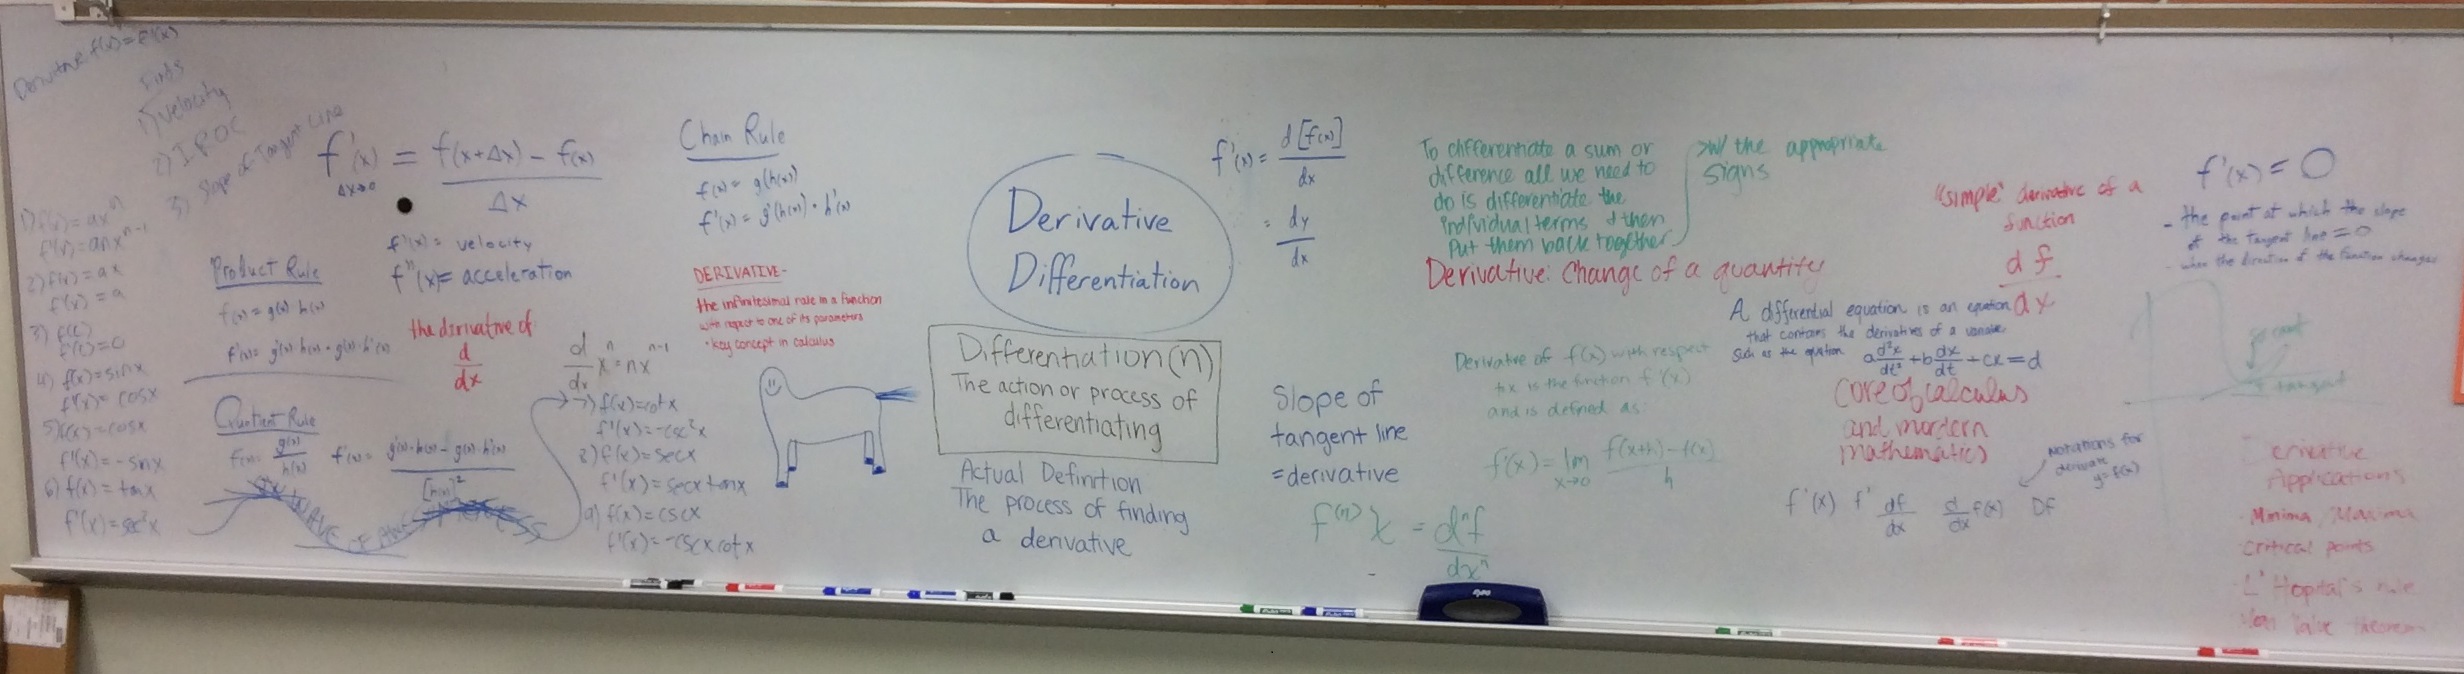 Derivitive f(x) = F'(x)
Finds
1) velocity
2) I ROC
3) Slope of Tangent Line
f'(x) = f(x+Δx) - f(x)
Δx→0
Δx
f'(x) = velocity
f''(x) = acceleration
1) f(x) = ax^n
f'(x) = anx^n-1
2) f(x) = ax
f'(x) = a
3) f(c)
f'(c) = 0
4) f(x) = sinx
f'(x) = cosx
5) f(x) = cosx
f'(x) = -sinx
6) f(x) = tanx
f'(x) = sec²x
Product Rule
f(x) = g(x) h(x)
f'(x) = g'(x) h(x) + g(x) h'(x)
Quotient Rule
f(x) = g(x)/h(x) f'(x) = g'(x)·h(x) - g(x)·h'(x)
[h(x)]²
the derivative of
d
dx
d/dx x^n = nx^n-1
7) f(x) = cotx
f'(x) = -csc²x
8) f(x) = secx
f'(x) = secx tanx
9) f(x) = cscx
f'(x) = -cscx cotx
Chain Rule
f(x) = g(h(x))
f'(x) = g'(h(x)) · h'(x)
DERIVATIVE-
the infinitesimal rate in a function
with respect to one of its parameters
• key concept in calculus
Derivative
Differentiation
Differentiation (n)
The action or process of
differentiating
Actual Definition
The process of finding
a derivative
f'(x) = d[f(x)]
dx
= dy
dx
Slope of
tangent line
= derivative
f^(n) x = d^n f
dx^n
To differentiate a sum or
difference all we need to
do is differentiate the
individual terms & then
put them back together
w/ the appropriate
signs
Derivative: Change of a quantity
Derivative of f(x) with respect
to x is the function f'(x)
and is defined as:
f'(x) = lim f(x+h) - f(x)
x→0 h
"simple" derivative of a
function
df
dx
A differential equation is an equation
that contains the derivatives of a variable
such as the equation a d²x/dt² + b dx/dt + cx = d
Core of calculus
and mordern
mathematics
Notations for
derivate
y = f(x)
f'(x) f' df/dx d/dx f(x) DF
f'(x) = 0
- the point at which the slope
of the tangent line = 0
- when the direction of the function changes
secant
tangent
Derivative
Applications
• Minima / Maxima
• Critical points
• L'Hopital's rule
• Mean Value theorem